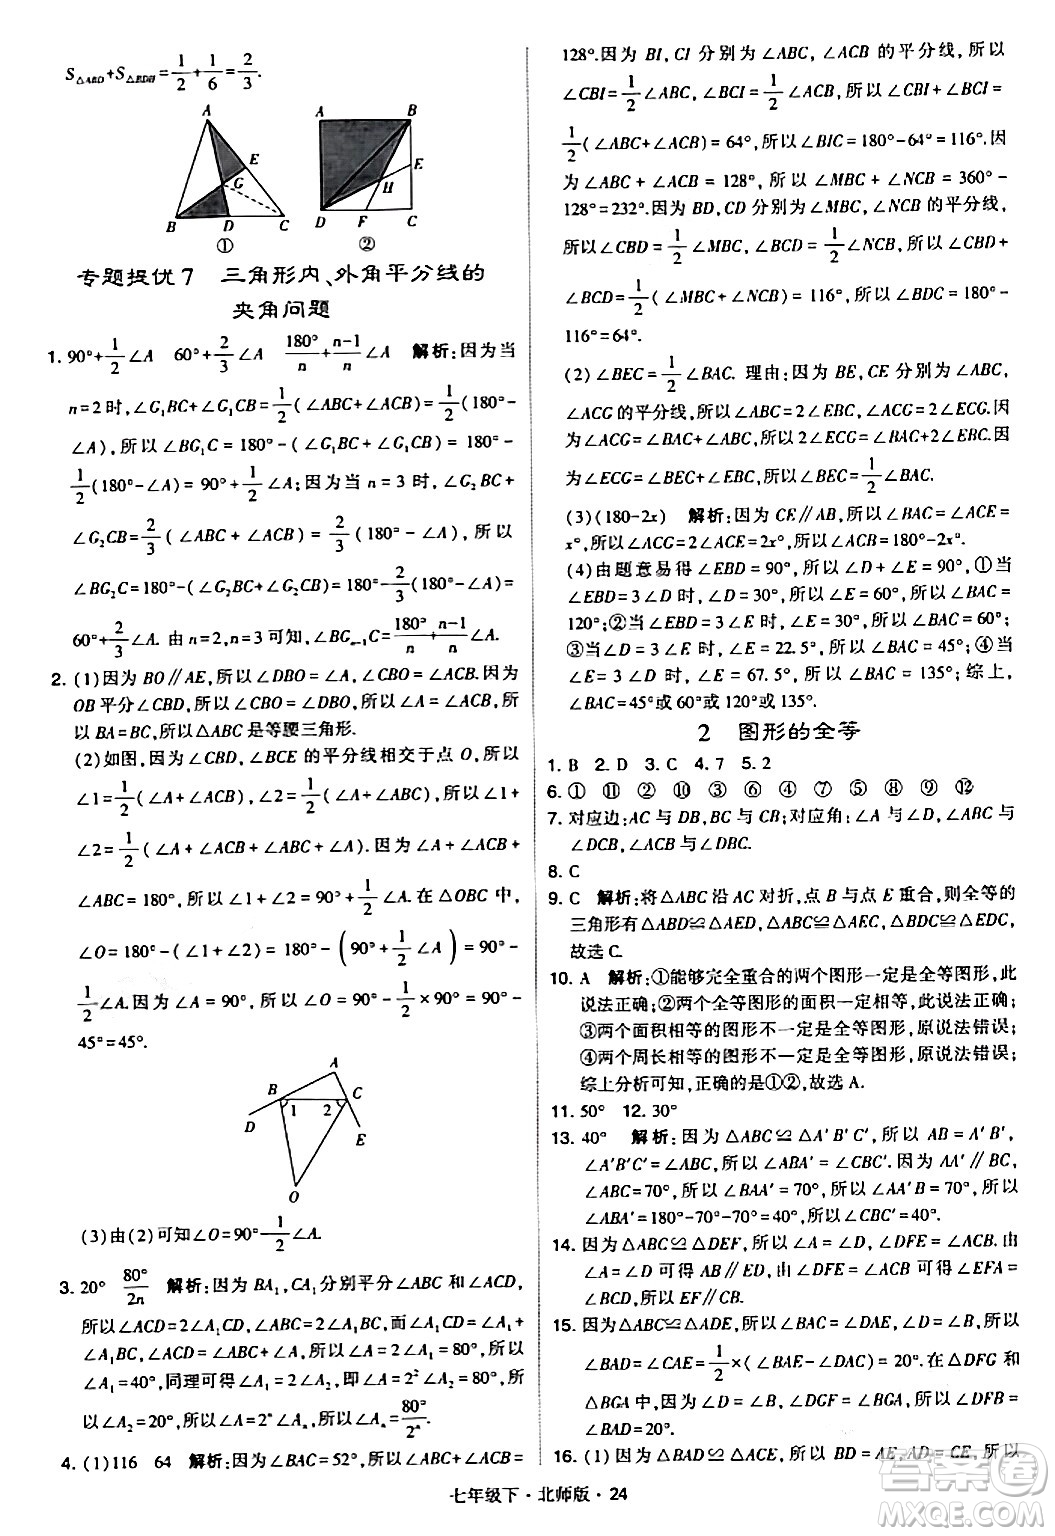 S△AED+S△EDH=1/2+1/6=2/3.
A
E
G
B D C
①
A B
E
H
D F C
②
专题提优7 三角形内、外角平分线的
夹角问题
1. 90°+1/2∠A 60°+2/3∠A 180°/n+(n-1)/n∠A 解析:因为当
n=2时,∠G₁BC+∠G₁CB=1/2(∠ABC+∠ACB)=1/2(180°-
∠A),所以∠BG₁C=180°-(∠G₁BC+∠G₁CB)=180°-
1/2(180°-∠A)=90°+1/2∠A;因为当n=3时,∠G₂BC+
∠G₂CB=2/3(∠ABC+∠ACB)=2/3(180°-∠A),所以
∠BG₂C=180°-(∠G₂BC+∠G₂CB)=180°-2/3(180°-∠A)=
60°+2/3∠A.由n=2,n=3可知,∠BGₙ₋₁C=180°/n+(n-1)/n∠A.
2. (1)因为BO∥AE,所以∠DBO=∠A,∠CBO=∠ACB.因为
OB平分∠CBD,所以∠CBO=∠DBO,所以∠A=∠ACB,所
以BA=BC,所以△ABC是等腰三角形.
(2)如图,因为∠CBD,∠BCE的平分线相交于点O,所以
∠1=1/2(∠A+∠ACB)=1/2(∠A+∠ACB),∠2=1/2(∠A+∠ABC),所以∠1+
∠2=1/2(∠A+∠ACB+∠A+∠ABC)=1/2(∠A+∠ACB+
∠ABC+∠A)=1/2(180°+∠A)=90°+1/2∠A.在△OBC中,
∠O=180°-(∠1+∠2)=180°-(90°+1/2∠A)=90°-
1/2∠A.因为∠A=90°,所以∠O=90°-1/2×90°=90°-
45°=45°.
A
B C
1 2
D E
O
(3)由(2)可知∠O=90°-1/2∠A.
3. 20° 80°/2ⁿ 解析:因为BA₁,CA₁分别平分∠ABC和∠ACD,
所以∠ACD=2∠A₁CD,∠ABC=2∠A₁BC,而∠A₁CD=∠A₁+
∠A₁BC,∠ACD=∠ABC+∠A,所以∠A=2∠A₁=80°,所以
∠A₁=40°,同理可得∠A₁=2∠A₂,即∠A=2²∠A₂=80°,所
以∠A₂=20°,所以∠A=2ⁿ∠Aₙ,所以∠Aₙ=80°/2ⁿ.
4. (1)116 64 解析:因为∠BAC=52°,所以∠ABC+∠ACB=
128°.因为BI,CI分别为∠ABC,∠ACB的平分线,所以
∠CBI=1/2∠ABC,∠BCI=1/2∠ACB,所以∠CBI+∠BCI=
1/2(∠ABC+∠ACB)=64°,所以∠BIC=180°-64°=116°.因
为∠ABC+∠ACB=128°,所以∠MBC+∠NCB=360°-
128°=232°.因为BD,CD分别为∠MBC,∠NCB的平分线,
所以∠CBD=1/2∠MBC,∠BCD=1/2∠NCB,所以∠CBD+
∠BCD=1/2(∠MBC+∠NCB)=116°,所以∠BDC=180°-
116°=64°.
(2)∠BEC=1/2∠BAC.理由:因为BE,CE分别为∠ABC,
∠ACG的平分线,所以∠ABC=2∠EBC,∠ACG=2∠ECG.因
为∠ACG=∠ABC+∠BAC,所以2∠ECG=∠BAC+2∠EBC.因
为∠ECG=∠BEC+∠EBC,所以∠BEC=1/2∠BAC.
(3)(180-2x) 解析:因为CE∥AB,所以∠BAC=∠ACE=
x°,所以∠ACG=2∠ACE=2x°,所以∠ACB=180°-2x°.
(4)由题意易得∠EBD=90°,所以∠D+∠E=90°,①当
∠EBD=3∠D时,∠D=30°,所以∠E=60°,所以∠BAC=
120°;②当∠EBD=3∠E时,∠E=30°,所以∠BAC=60°;
③当∠D=3∠E时,∠E=22.5°,所以∠BAC=45°;④当
∠E=3∠D时,∠E=67.5°,所以∠BAC=135°;综上,
∠BAC=60°或45°或120°或135°.
2 图形的全等
1. B 2. D 3. C 4. 7 5. 2
6. ① ⑪ ② ⑩ ③ ⑥ ④ ⑦ ⑤ ⑧ ⑨ ⑫
7. 对应边:AC与DB,BC与CB;对应角:∠A与∠D,∠ABC与
∠DCB,∠ACB与∠DBC.
8. C
9. C 解析:将△ABC沿AC对折,点B与点E重合,则全等的
三角形有△ABD≌△AED,△ABC≌△AEC,△BDC≌△EDC.
故选C.
10. A 解析:①能够完全重合的两个图形一定是全等图形,此
说法正确;②两个全等图形的面积一定相等,此说法正确;
③两个面积相等的图形不一定是全等图形,原说法错误;
④两个周长相等的图形不一定是全等图形,原说法错误;
综上分析可知,正确的是①②,故选A.
11. 50° 12. 30°
13. 40° 解析:因为△ABC≌△A′B′C′,所以AB=A′B′,
∠A′B′C′=∠ABC,所以∠ABA′=∠CBC′.因为AA′∥BC,
∠ABC=70°,所以∠BAA′=70°,所以∠AA′B=70°,所以
∠ABA′=180°-70°-70°=40°,所以∠CBC′=40°.
14. 因为△ABC≌△DEF,所以∠A=∠D,∠DFE=∠ACB.由
∠A=∠D可得AB∥ED,由∠DFE=∠ACB可得∠EFA=
∠BCD,所以EF∥CB.
15. 因为△ABC≌△ADE,所以∠BAC=∠DAE,∠D=∠B,所以
∠BAD=∠CAE=1/2×(∠BAE-∠DAC)=20°.在△DFG和
△BGA中,因为∠D=∠B,∠DGF=∠BGA,所以∠DFB=
∠BAD=20°.
16. (1)因为△BAD≌△ACE,所以BD=AE,AD=CE,所以
答案圈
MXQE.COM
七年级下·北师版·24